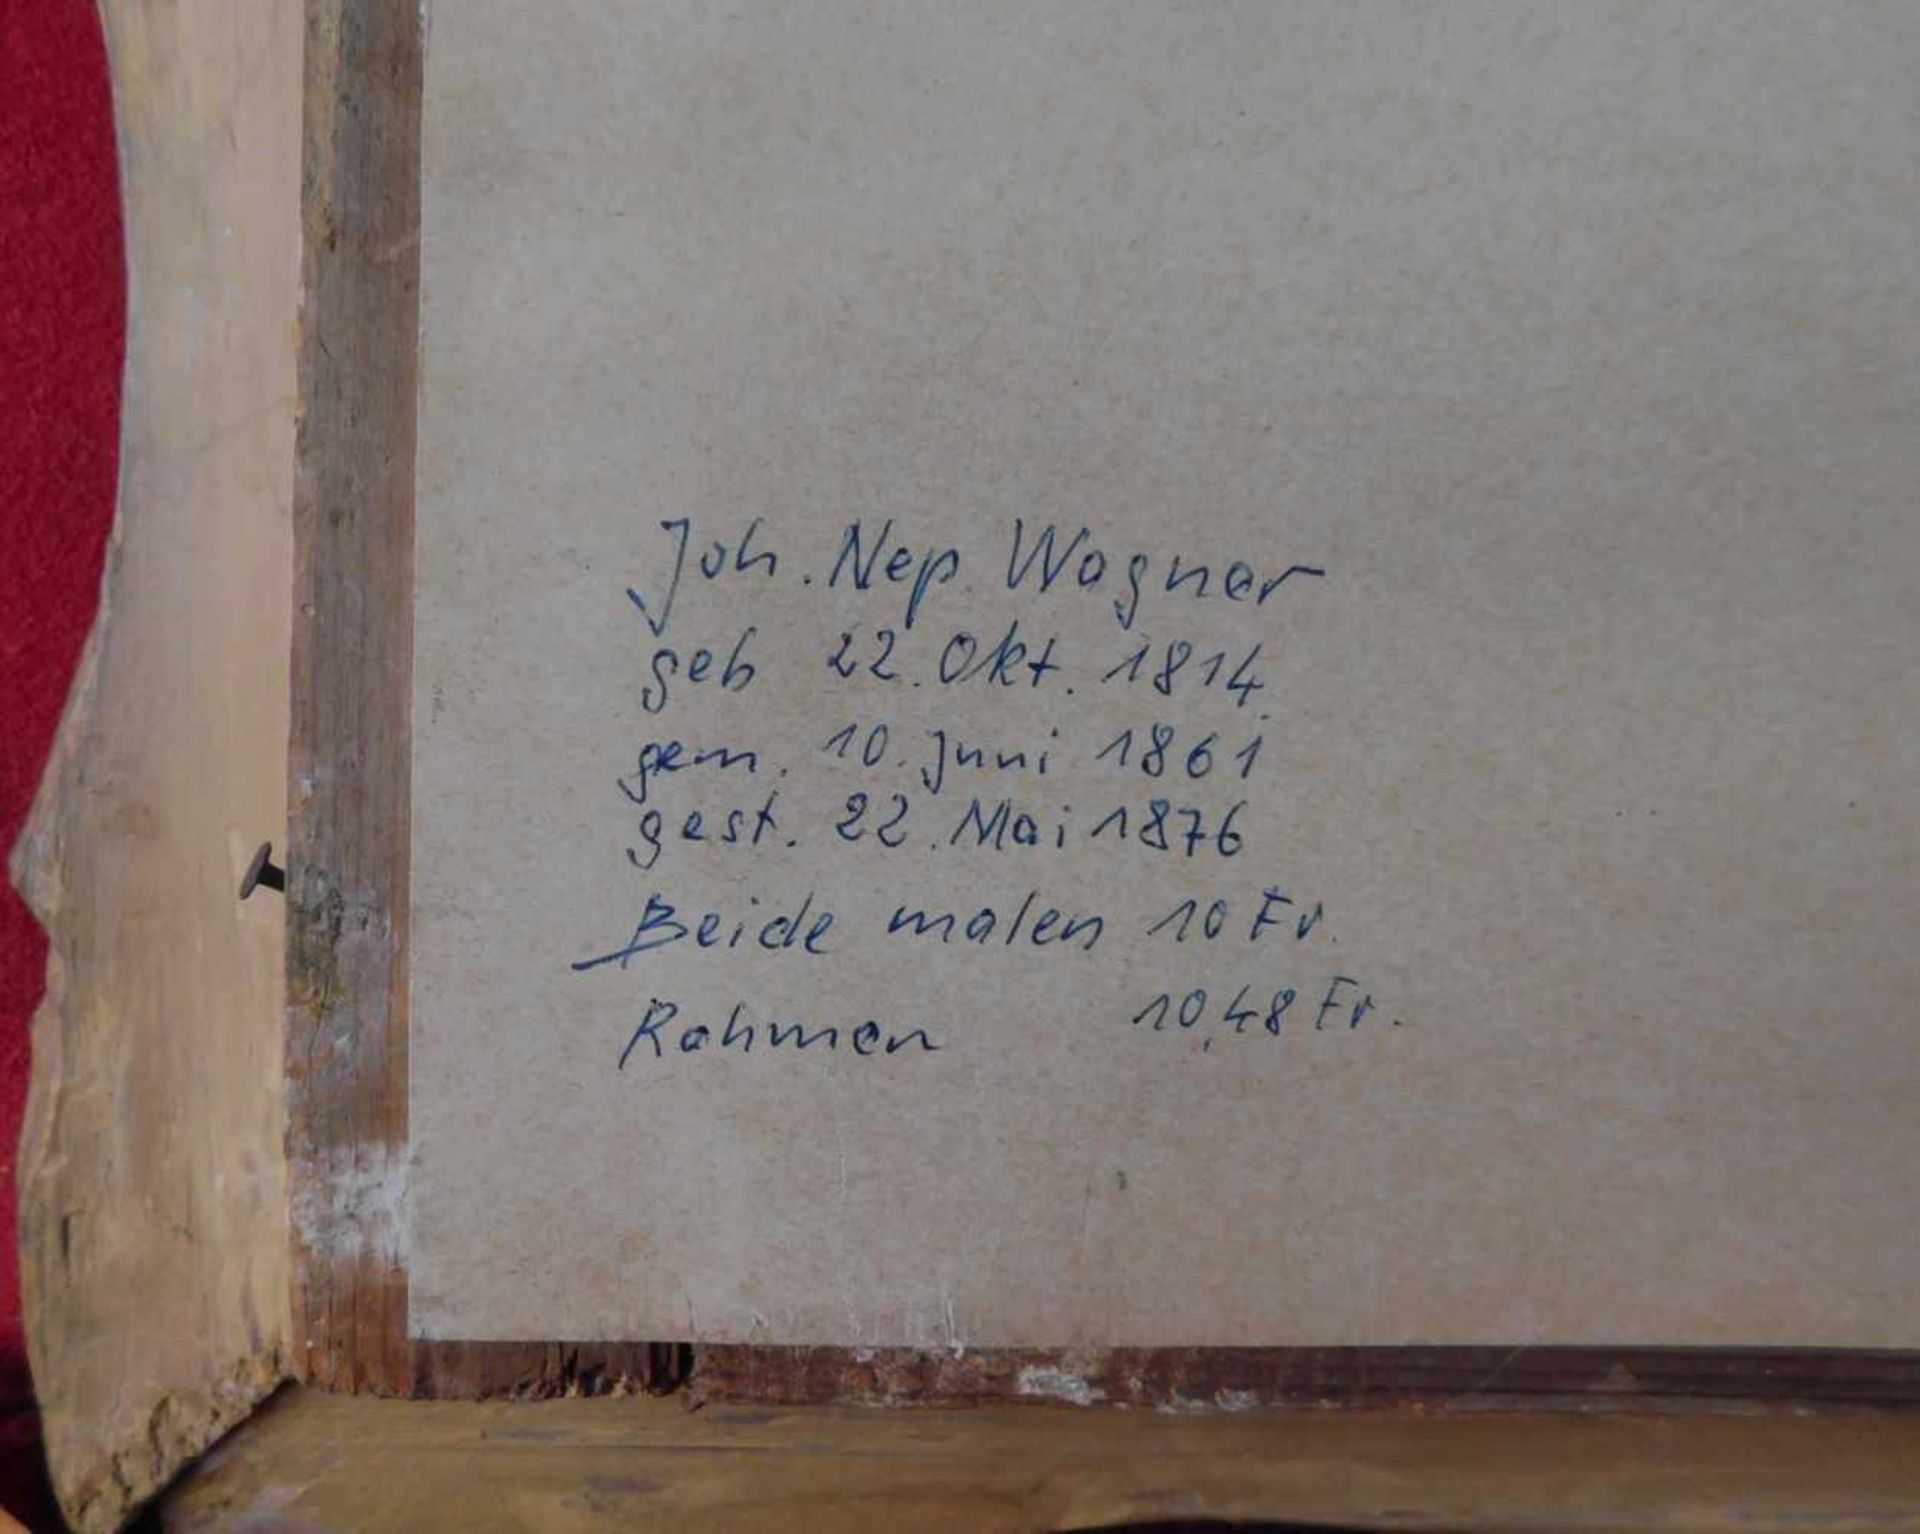 Joh. Nep. Wagner
geb 22. Okt. 1814.
gem. 10. Juni 1861
gest. 22. Mai 1876
Beide malen 10 Fr.
Rahmen 10,48 Fr.